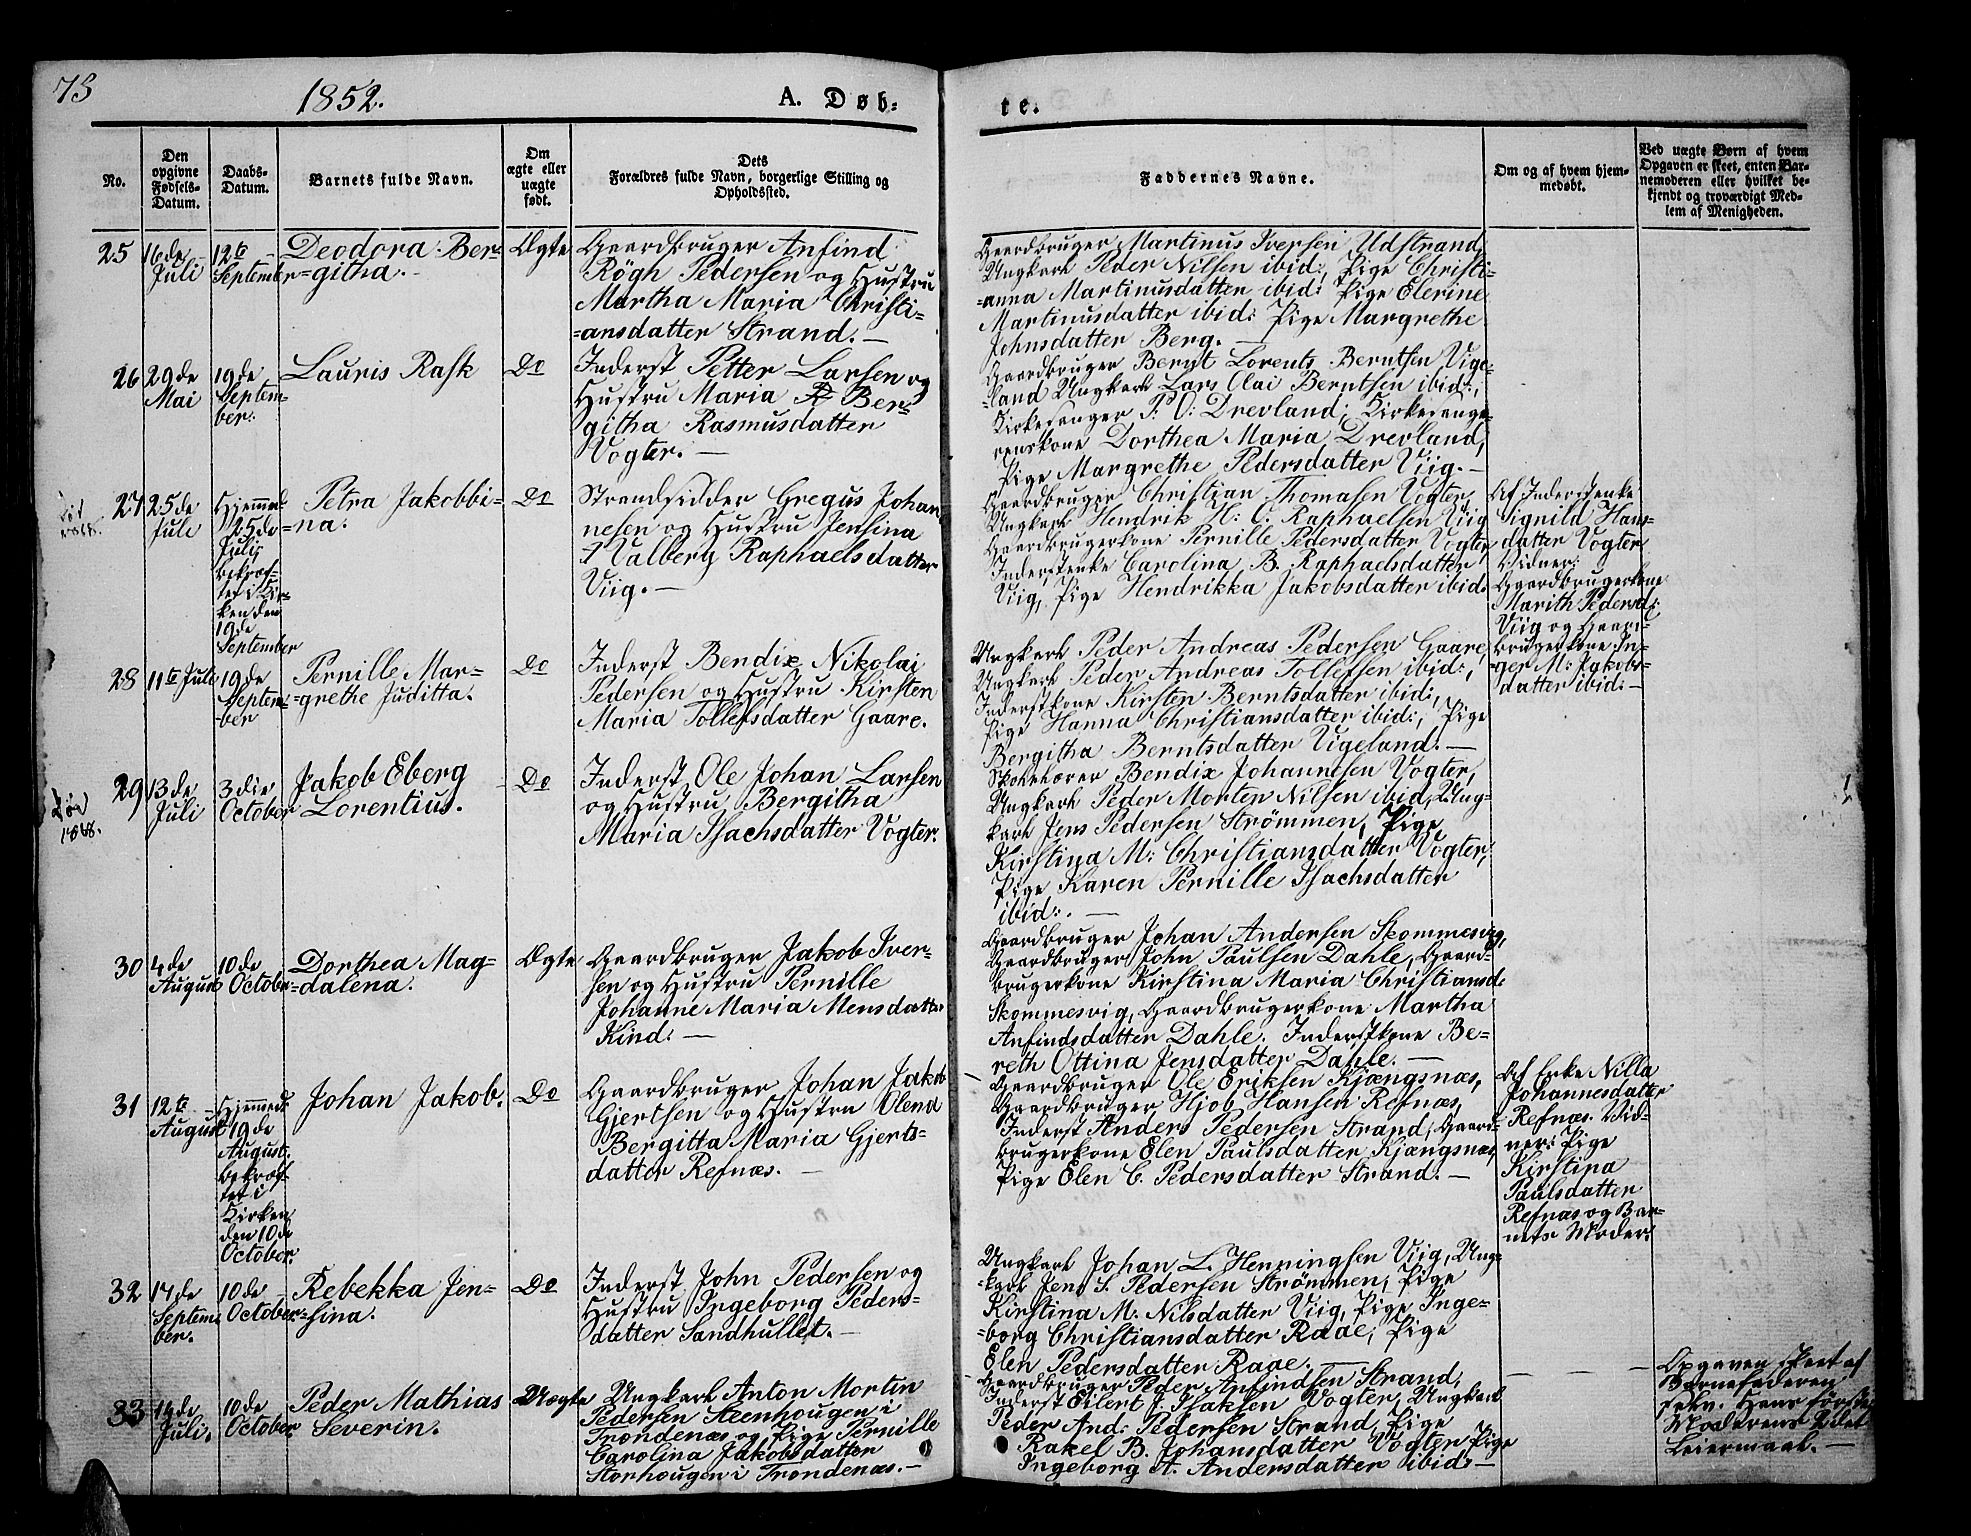 73
1852.
A. Døb-
te.
No.
Den
opgivne
Fødsels-
Datum.
Daabs-
Datum.
Barnets fulde Navn.
Om
ægte eller
uægte
født.
Dets
Forældres fulde Navn, borgerlige Stilling og
Opholdssted.
Faddernes Navne.
Om og af hvem hjem-
medøbt.
Ved uægte Børn af hvem
Opgaven er skeet, enten Bar-
nemoderen eller hvilket be-
kjendt og troværdigt Med-
lem af Menigheden.
25
16de
Juli
12te
September
Deodora Ber-
=githa.
Ægte
Gaardbruger Anfind
Rögh Pedersen og Hustru
Martha Maria Christi-
=ansdatter Strand.
Gaardbruger Martinus Iversen Udstrand,
Ungkarl Peder Nilsen ibid:, Pige Christi-
=anna Martinusdatter ibid: Pige Elerine
Martinusdatter ibid: Pige Margrethe
Johnsdatter Berg.
26
29de
Mai
19de
Septem-
ber.
Lauris Rask
Do
Inderst Petter Larsen og
Hustru Maria Ber-
githa Rasmusdatter
Vogter.
Gaardbruger Bernt Lorents Berntsen Vige-
=land Ungkarl Lars Olai Berntsen ibid:,
Kirkesanger P: O: Drevland, Kirkesange-
renskone Dorthea Maria Drevland,
Pige Margrethe Pedersdatter Viig.
27
25de
Juli
Hjemmed.
25de
Juli
bekræf-
tet i Kir-
ken den
19de
September
Petra Jakobbi-
=na.
Do
Strandsidder Gregus Johan-
nesen og Hustru Jensina
Valberg Raphaelsdatter
Viig.
Gaardbruger Christian Thomasen Vogter,
Ungkarl Hendrik H: C. Raphaelsen Viig
Gaardbrugerkone Pernille Pedersdatter Vogter
Inderstenke Carolina B. Raphaelsdatter
Viig, Pige Hendrikka Jakobsdatter ibid:
Af Inderstenke
Signild Hans-
datter Vogter
Vidner:
Gaardbrugerkone
Marith Pedersd:
Viig og Gaard-
brugerkone In-
ger M: Jakobs-
datter ibid:
28
11te Juli
19de
Septem-
ber
Pernille Mar-
=grethe Juditta.
Do
Inderst Bendix Nikolai
Pedersen og Hustru Kirsten
Maria Tollefsdatter Gaare.
Ungkarl Peder Andreas Pedersen Gaare,
Ungkarl Peder Andreas Tollefsen ibid:,
Inderstkone Kirsten Berntsdatter ibid:,
Pige Hanna Christiansdatter ibid:, Pige
Bergitha Berntsdatter Vigeland.
29
13de
Juli
3die
October
Jakob Eberg
Lorentius.
Do
Inderst Ole Johan Larsen
og Hustru Bergitha
Maria Isachsdatter Vogter.
Skolelærer Bendix Johannesen Vogter,
Ungkarl Peder Morten Nilsen ibid, Ung-
karl Jens Pedersen Strömmen, Pige
Kirstina M: Christiansdatter Vogter,
Pige Karen Pernille Isachsdatter
ibid:.
30
4de
August
10de
October
Dorthea Mag-
=dalena.
Ægte
Gaardbruger Jakob Iver-
sen og Hustru Pernille
Johanne Maria Mensdatter
Kind.
Gaardbruger Johan Andersen Skommesvig,
Gaardbruger John Paulsen Dahle, Gaard-
brugerkone Kirstina Maria Christiansd:
Skommesvig, Gaardbrugerkone Martha
Anfindsdatter Dahle. Inderstkone Be-
reth Ottina Jensdatter Dahle.
31
12te
August
Hjemmed.
19de
August,
bekræf-
tet i
Kirken
den 10de
October.
Johan Jakob.
Do
Gaardbruger Johan Jakob
Gjertsen og Hustru Olena
Bergitta Maria Gjerts-
datter Refnæs.
Gaardbruger Ole Eriksen Kjængsnæs,
Gaardbruger Hjob Hansen Refnæs,
Inderst Anders Pedersen Strand, Gaard-
brugerkone Elen Paulsdatter Kjængsnæs,
Pige Elen C. Pedersdatter Strand.
Af Enke Nilla
Johannesdatter
Refnæs. Vid-
ner: Pige
Kirstina
Paulsdatter
Refnæs og Bar-
nets Moder.
32
14de
Septem-
ber.
10de
October
Rebekka Jen-
=sina.
Do
Inderst John Pedersen og
Hustru Ingeborg Peders-
datter Sandhullet.
Ungkarl Johan L. Henningsen Viig, Ung-
karl Jens S. Pedersen Strömmen, Pige
Kirstina M. Nilsdatter Viig, Pige Inge-
=borg Christiansdatter Raae, Pige
Elen Pedersdatter Raae.
33
14de
Juli.
10de
October
Peder Mathias
Severin.
Uægte
Ungkarl Anton Mortin
Pedersen Steenhougen i
Trondenæs og Pige Pernille
Carolina Jakobsdatter
Storhougen i Trondenæs.
Gaardbruger Peder Anfindsen Strand,
Inderst Eilert J. Isaksen Vogter, Ungkarl
Peder And: Pedersen Strand, Pige
Rakel B. Johansdatter Vogter Pige
Ingeborg A. Andersdatter ibid:
Opgaven skeet af
Barnefaderen
selv. Hans første
Moderens 2det
Leiermaal.